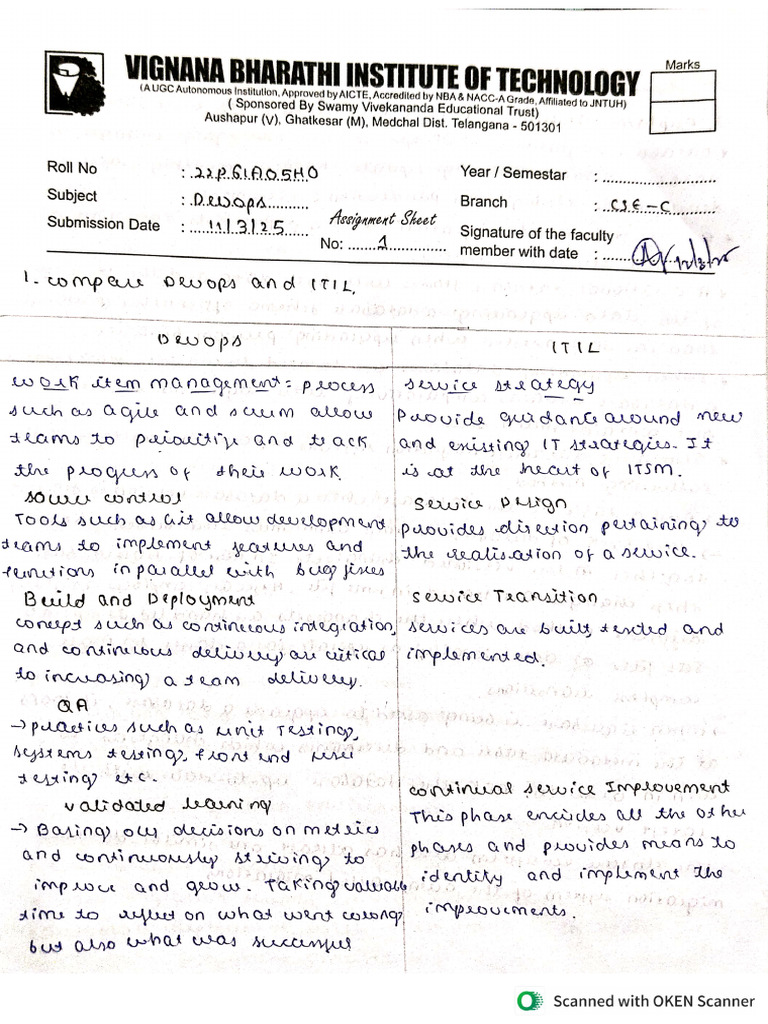 VIGNANA BHARATHI INSTITUTE OF TECHNOLOGY
(A UGC Autonomous Institution, Approved by AICTE, Accredited by NBA & NACC-A Grade, Affiliated to JNTUH)
( Sponsored By Swamy Vivekananda Educational Trust)
Aushapur (V). Ghatkesar (M), Medchal Dist. Telangana - 501301
Marks
Roll No : 22P61A05H0
Year / Semestar :
Subject : Devops
Branch : CSE-C
Submission Date : 11/3/25
Assignment Sheet
No: 1
Signature of the faculty
member with date : 12/3/25
1. Compare Devops and ITIL.
Devops
work item management: process
such as agile and scrum allow
teams to prioritize and track
the progress of their work.
source control
Tools such as Git allow development
teams to implement features and
functions in parallel with bug fixes
Build and Deployment
concept such as continuous integration,
and continuous delivery are critical
to increasing a team delivery.
QA
→ practices such as unit Testing,
systems testing, front end user
testing etc.
validated learning
→ Basing our decisions on metrics
and continuously striving to
improve and grow. Taking valuable
time to reflect on what went wrong
but also what was successful
ITIL
service strategy
Provide guidance around new
and existing IT strategies. It
is at the heart of ITSM.
Service Design
provides direction pertaining to
the realisation of a service.
Service Transition
services are built, tested and
implemented.
continual service Improvement
This phase encircles all the other
phases and provides means to
identity and implement the
improvements.
Scanned with OKEN Scanner